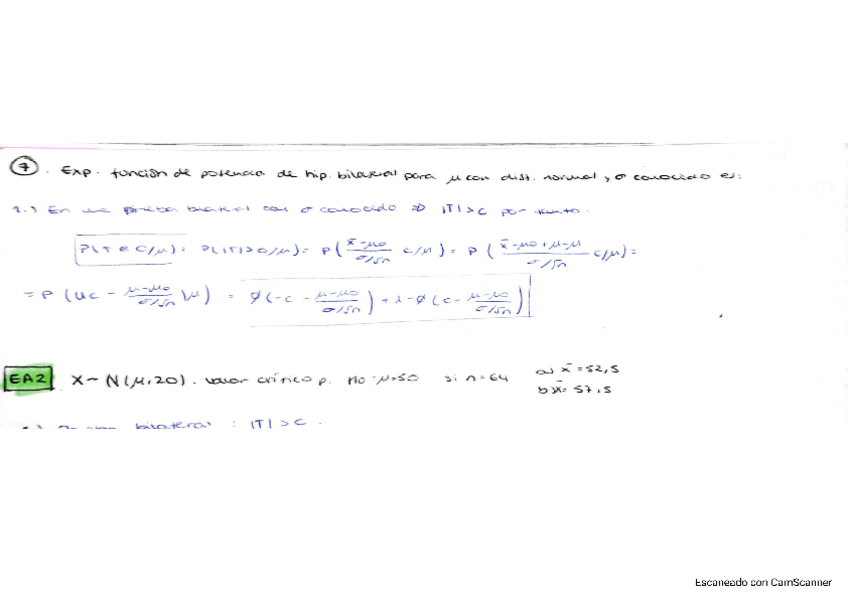 7. Exp. función de potencia de hip. bilateral para μ con dist. normal, σ conocido es:
1.) En una prueba bilateral con σ conocido ⇒ |T|>C por tanto:
P(T∈C/μ) = P(|T|>C/μ) = P( (x̄-μ0)/(σ/√n) C/μ) = P( (x̄-μ0+μ-μ)/(σ/√n) C/μ) =
= P (UC - (μ-μ0)/(σ/√n) \μ) = ϕ(-C - (μ-μ0)/(σ/√n)) + 1-ϕ(C - (μ-μ0)/(σ/√n))
EA2 X~N(μ,20). Valor crítico p. H0=μ=50 si n=64 a) x̄=52,5
b) x̄=57,5
bilateral : |T|>C.
Escaneado con CamScanner